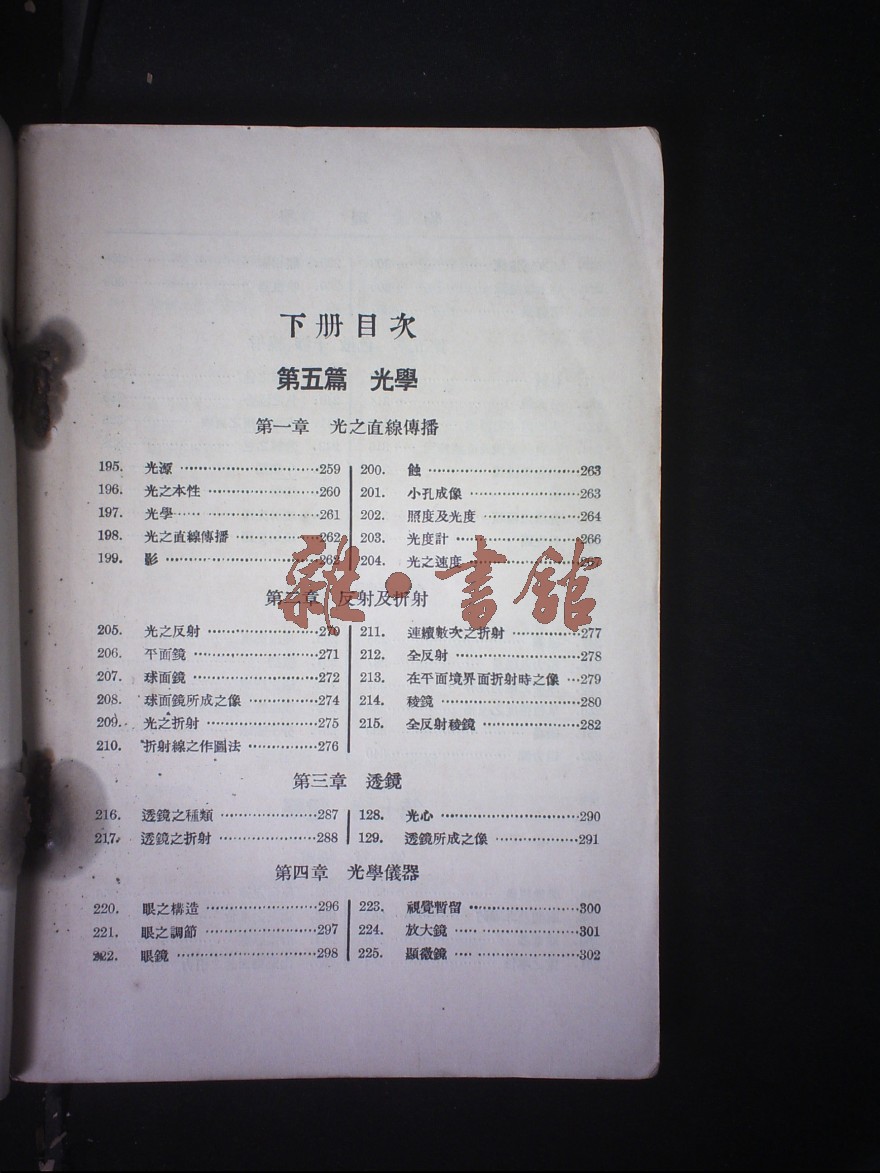 下册目次
第五篇 光學
第一章 光之直線傳播
195. 光源 ……259
196. 光之本性 ……260
197. 光學 ……261
198. 光之直線傳播 ……262
199. 影 ……262
200. 蝕 ……263
201. 小孔成像 ……263
202. 照度及光度 ……264
203. 光度計 ……266
204. 光之速度 ……267
雜·書館
第二章 反射及折射
205. 光之反射 ……270
206. 平面鏡 ……271
207. 球面鏡 ……272
208. 球面鏡所成之像 ……274
209. 光之折射 ……275
210. 折射線之作圖法 ……276
211. 連續數次之折射 ……277
212. 全反射 ……278
213. 在平面境界面折射時之像 …279
214. 稜鏡 ……280
215. 全反射稜鏡 ……282
第三章 透鏡
216. 透鏡之種類 ……287
217. 透鏡之折射 ……288
128. 光心 ……290
129. 透鏡所成之像 ……291
第四章 光學儀器
220. 眼之構造 ……296
221. 眼之調節 ……297
222. 眼鏡 ……298
223. 視覺暫留 ……300
224. 放大鏡 ……301
225. 顯微鏡 ……302